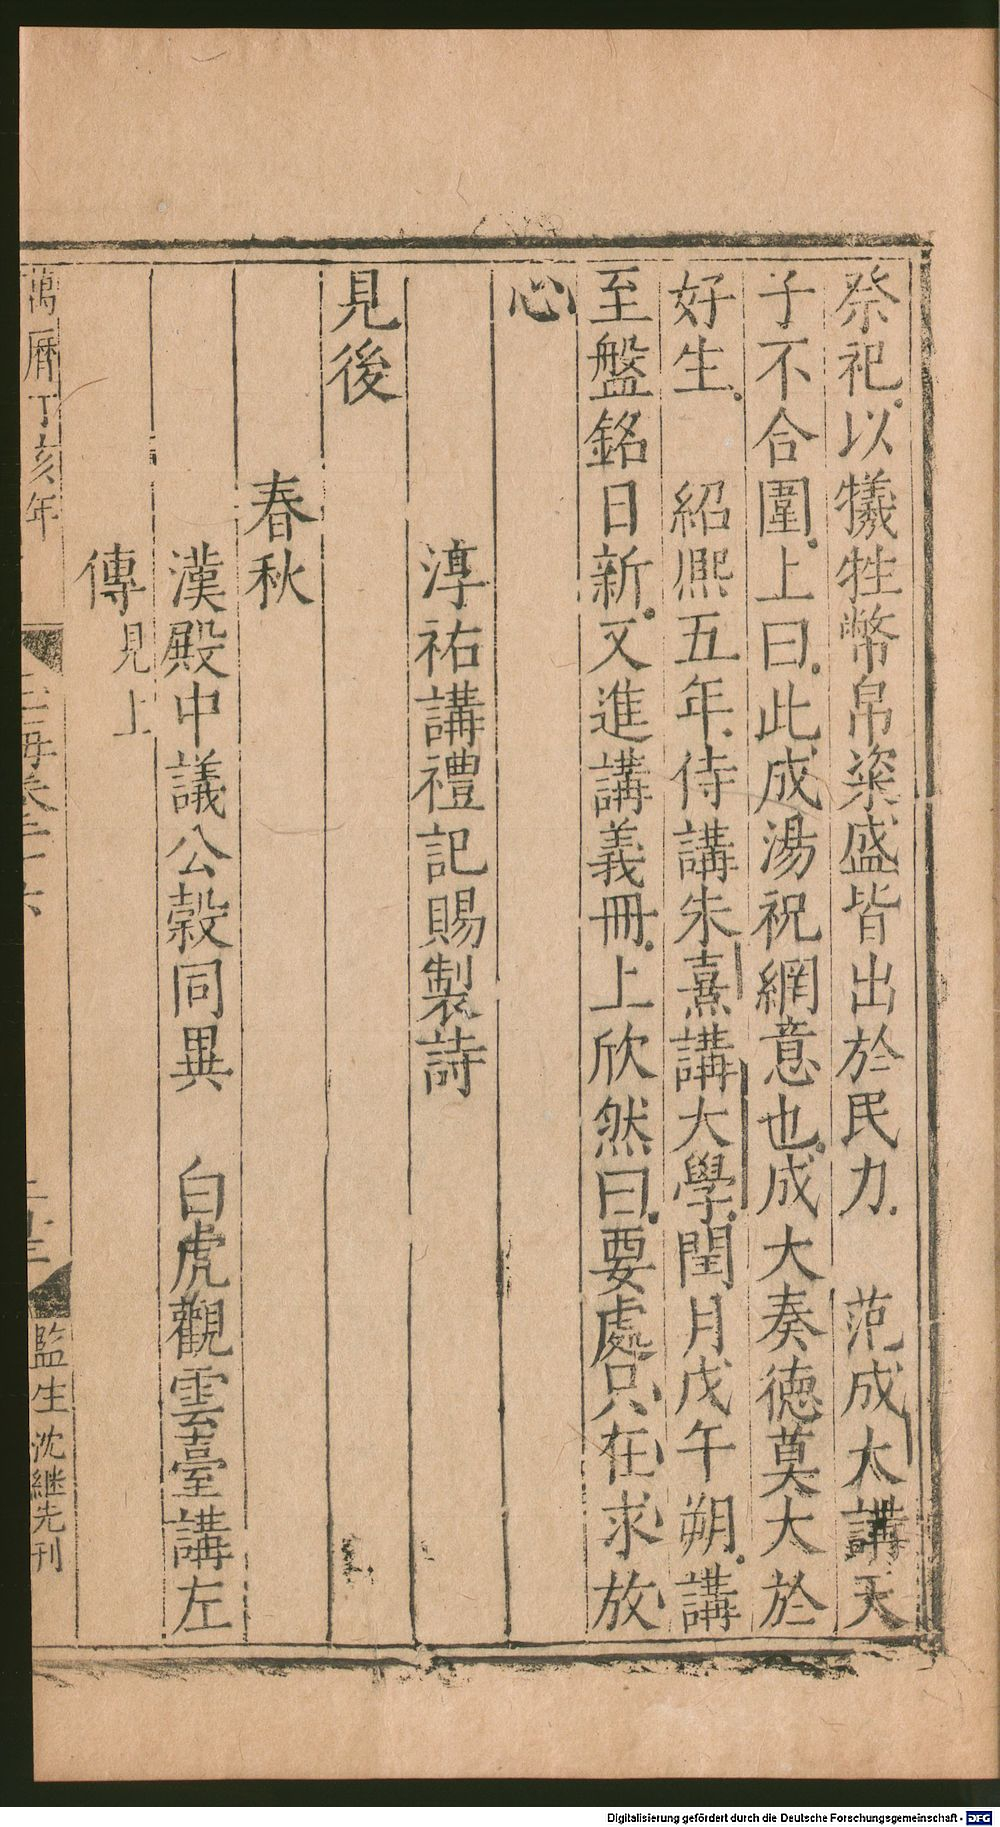 祭祀以犧牲幣帛粢盛皆出於民力　范成大講天
子不合圍上曰此成湯祝網意也成大奏德莫大於
好生　紹熈五年侍講朱熹講大學閏月戊午朔講
至盤銘日新又進講義冊上欣然曰要處只在求放
心
淳祐講禮記賜製詩
見後
春秋
漢殿中議公穀同異　白虎觀雲臺講左
傳見上
萬曆丁亥年
玉海卷二十六
監生沈継先刊
Digitalisierung gefördert durch die Deutsche Forschungsgemeinschaft - DFG